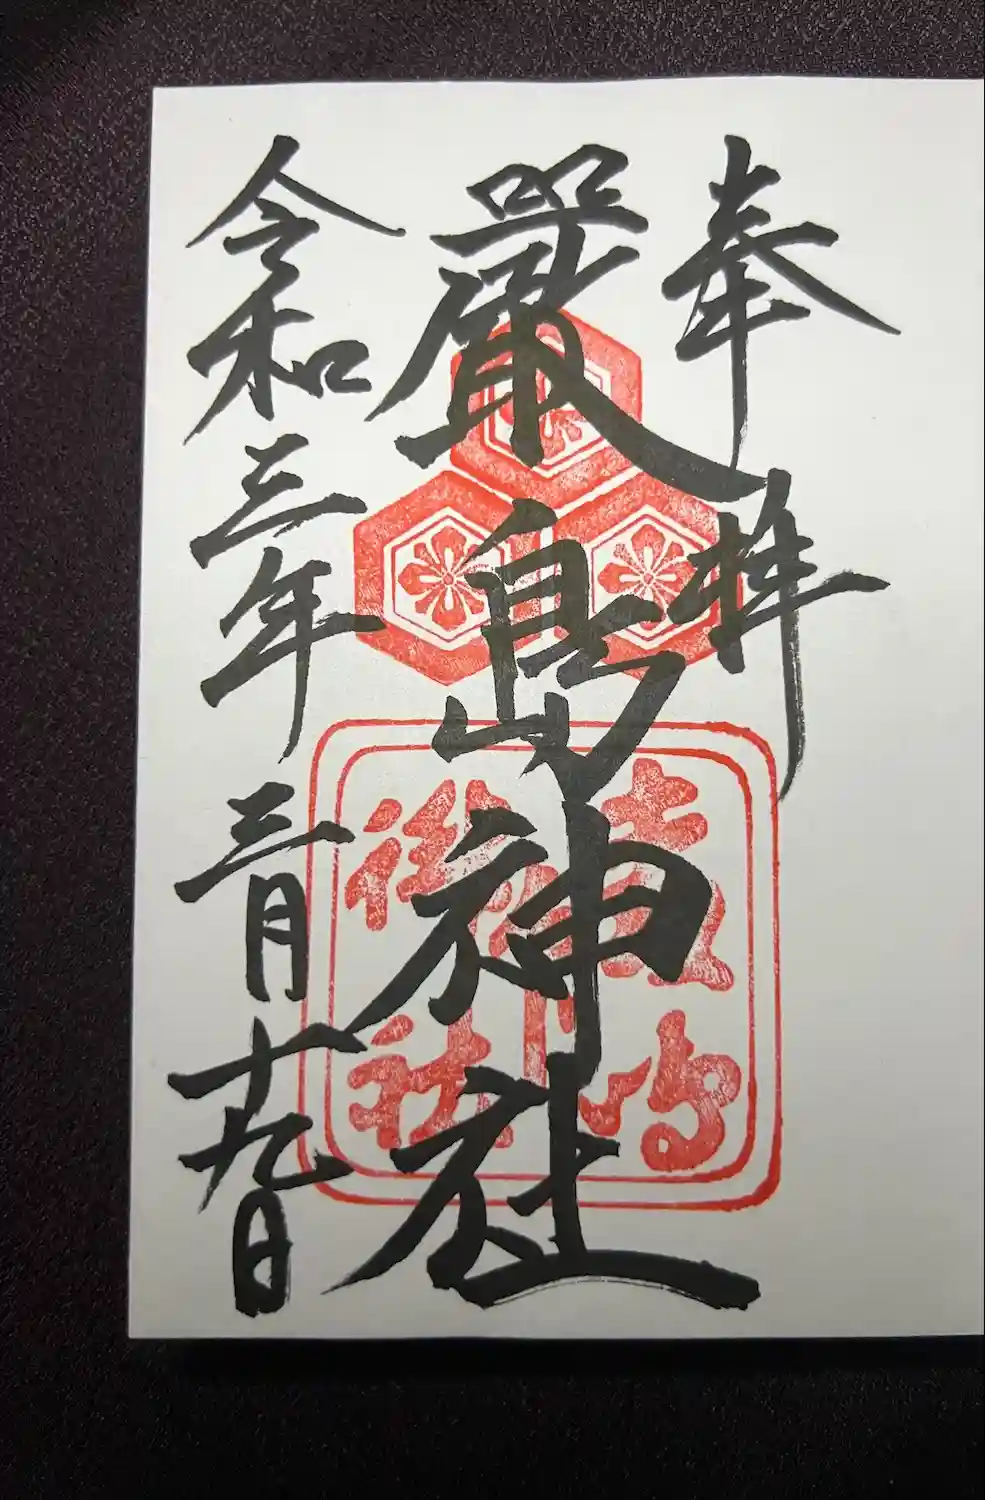 奉拝
嚴島神社
令和三年三月十九日